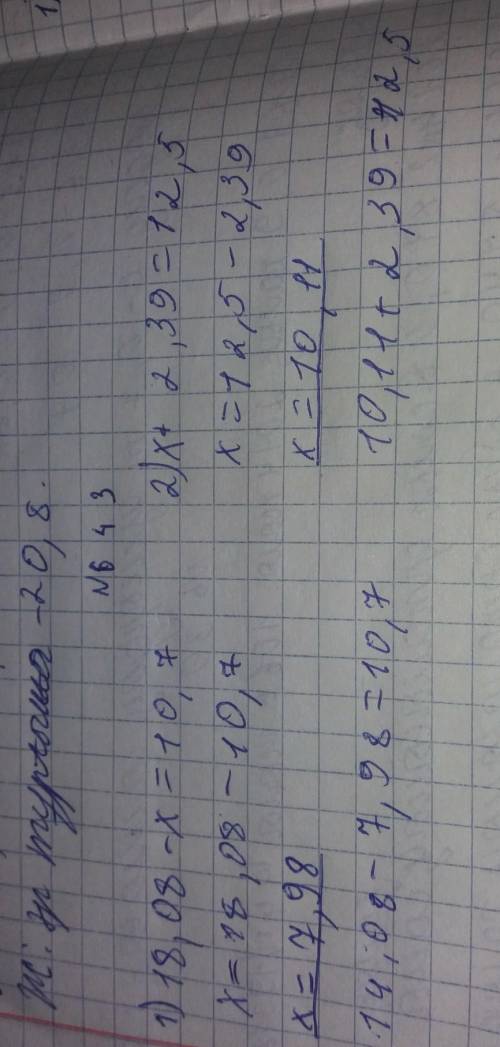 Ж: ер туркоmы -20,8.
№ 643
1) 18,08 - x = 10,7
x = 18,08 - 10,7
x = 7,98
14,08 - 7,98 = 10,7
2) x + 2,39 = 12,5
x = 12,5 - 2,39
x = 10,11
10,11 + 2,39 = 12,5
1)